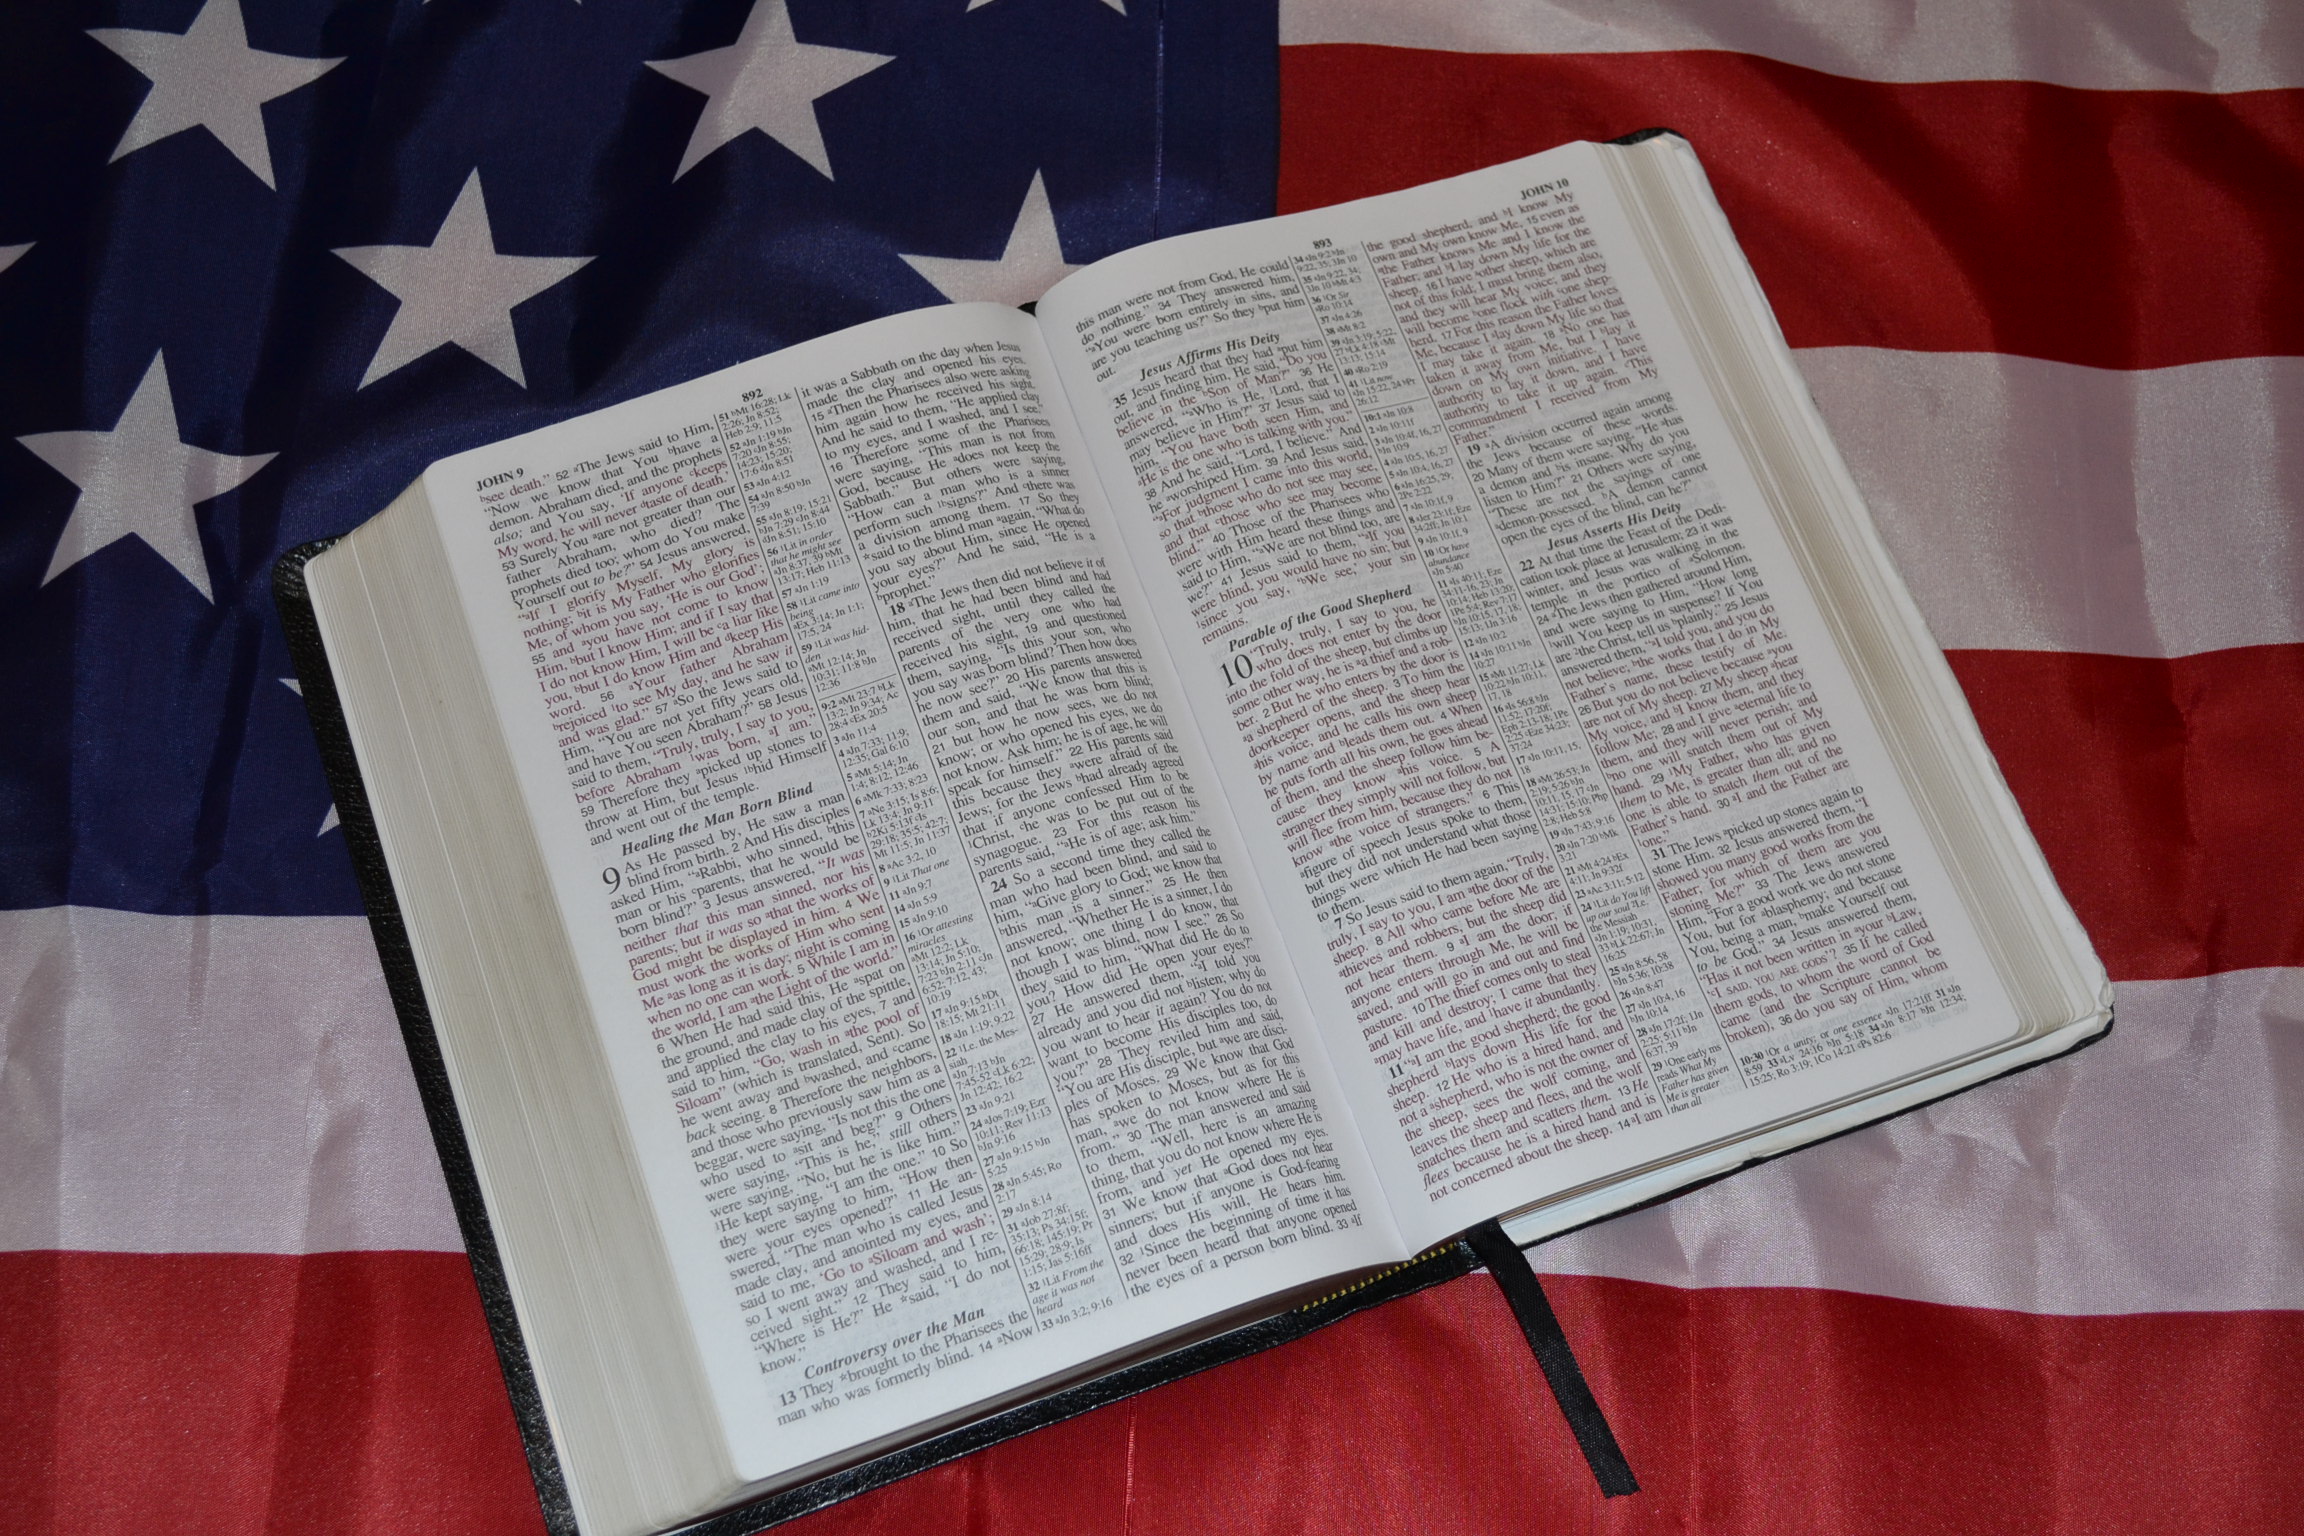 JOHN 9
892
bsee death.” 52 aThe Jews said to Him,
“Now we know that You bhave a
demon. Abraham died, and the prophets
also; and You say, ‘If anyone ckeeps
My word, he will never dtaste of death.’
53 Surely You aare not greater than our
father Abraham, who died? The
prophets died too; whom do You make
Yourself out to be?” 54 Jesus answered,
“aIf I glorify Myself, My glory is
nothing; bit is My Father who glorifies
Me, of whom you say, ‘He is our God’;
55 and ayou have not come to know
Him, bbut I know Him; and if I say that
I do not know Him, I will be ca liar like
you, bbut I do know Him and dkeep His
word. 56 aYour father Abraham
brejoiced 1to see My day, and he saw it
and was glad.” 57 aSo the Jews said to
Him, “You are not yet fifty years old,
and have You seen Abraham?” 58 Jesus
said to them, “Truly, truly, I say to you,
before Abraham 1was born, aI am.”
59 Therefore they apicked up stones to
throw at Him, but Jesus 1bhid Himself
and went out of the temple.
Healing the Man Born Blind
9 As He passed by, He saw a man
blind from birth. 2 And His disciples
asked Him, “aRabbi, who sinned, bthis
man or his cparents, that he would be
born blind?” 3 Jesus answered, “It was
neither that this man sinned, nor his
parents; but it was so athat the works of
God might be displayed in him. 4 We
must work the works of Him who sent
Me aas long as it is day; night is coming
when no one can work. 5 While I am in
the world, I am athe Light of the world.”
6 When He had said this, He aspat on
the ground, and made clay of the spittle,
and applied the clay to his eyes, 7 and
said to him, “Go, wash in athe pool of
Siloam” (which is translated, Sent). So
he went away and bwashed, and ccame
back seeing. 8 Therefore the neighbors,
and those who previously saw him as a
beggar, were saying, “Is not this the one
who used to asit and beg?” 9 Others
were saying, “This is he,” still others
were saying, “No, but he is like him.”
1He kept saying, “I am the one.” 10 So
they were saying to him, “How then
were your eyes opened?” 11 He an-
swered, “The man who is called Jesus
made clay, and anointed my eyes, and
said to me, ‘Go to aSiloam and wash’;
so I went away and washed, and I re-
ceived sight.” 12 They said to him,
“Where is He?” He *said, “I do not
know.”
Controversy over the Man
13 They *brought to the Pharisees the
man who was formerly blind. 14 aNow
51 bMt 16:28; Lk
2:26; Jn 8:52;
Heb 2:9; 11:5
52 aJn 1:19 bJn
7:20 cJn 8:55;
14:23; 15:20;
17:6 dJn 8:51
53 aJn 4:12
54 aJn 8:50 bJn
7:39
55 aJn 8:19; 15:21
bJn 7:29 cJn 8:44
dJn 8:51; 15:10
56 1Lit in order
that he might see
aJn 8:37, 39 bMt
13:17; Heb 11:13
57 aJn 1:19
58 1Lit came into
being
aEx 3:14; Jn 1:1;
17:5, 24
59 1Lit was hid-
den
aMt 12:14; Jn
10:31; 11:8 bJn
12:36
9:2 aMt 23:7 bLk
13:2; Jn 9:34; Ac
28:4 cEx 20:5
3 aJn 11:4
4 aJn 7:33; 11:9;
12:35; Gal 6:10
5 aMt 5:14; Jn
1:4; 8:12; 12:46
6 aMk 7:33; 8:23
7 aNe 3:15; Is 8:6;
Lk 13:4; Jn 9:11
b2Ki 5:13f cIs
29:18; 35:5; 42:7;
Mt 11:5; Jn 11:37
8 aAc 3:2, 10
9 1Lit That one
11 aJn 9:7
14 aJn 5:9
15 aJn 9:10
16 1Or attesting
miracles
aMt 12:2; Lk
13:14; Jn 5:10;
7:23 bJn 2:11 cJn
6:52; 7:12, 43;
10:19
17 aJn 9:15 bDt
18:15; Mt 21:11
18 aJn 1:19; 9:22
22 1I.e. the Mes-
siah
aJn 7:13 bJn
7:45-52 cLk 6:22;
Jn 12:42; 16:2
23 aJn 9:21
24 aJos 7:19; Ezr
10:11; Rev 11:13
bJn 9:16
27 aJn 9:15 bJn
5:25
28 aJn 5:45; Ro
2:17
29 aJn 8:14
31 aJob 27:8f;
35:13; Ps 34:15f;
66:18; 145:19; Pr
15:29; 28:9; Is
1:15; Jas 5:16ff
32 1Lit From the
age it was not
heard
33 aJn 3:2; 9:16
it was a Sabbath on the day when Jesus
made the clay and opened his eyes.
15 aThen the Pharisees also were asking
him again how he received his sight.
And he said to them, “He applied clay
to my eyes, and I washed, and I see.”
16 Therefore some of the Pharisees
were saying, “This man is not from
God, because He adoes not keep the
Sabbath.” But others were saying,
“How can a man who is a sinner
perform such 1bsigns?” And cthere was
a division among them. 17 So they
*said to the blind man aagain, “What do
you say about Him, since He opened
your eyes?” And he said, “He is a
bprophet.”
18 aThe Jews then did not believe it of
him, that he had been blind and had
received sight, until they called the
parents of the very one who had
received his sight, 19 and questioned
them, saying, “Is this your son, who
you say was born blind? Then how does
he now see?” 20 His parents answered
them and said, “We know that this is
our son, and that he was born blind;
21 but how he now sees, we do not
know; or who opened his eyes, we do
not know. Ask him; he is of age, he will
speak for himself.” 22 His parents said
this because they awere afraid of the
Jews; for the Jews bhad already agreed
that if anyone confessed Him to be
1Christ, che was to be put out of the
synagogue. 23 For this reason his
parents said, “aHe is of age; ask him.”
24 So a second time they called the
man who had been blind, and said to
him, “aGive glory to God; we know that
bthis man is a sinner.” 25 He then
answered, “Whether He is a sinner, I do
not know; one thing I do know, that
though I was blind, now I see.” 26 So
they said to him, “What did He do to
you? How did He open your eyes?”
27 He answered them, “aI told you
already and you did not blisten; why do
you want to hear it again? You do not
want to become His disciples too, do
you?” 28 They reviled him and said,
“You are His disciple, but awe are disci-
ples of Moses. 29 We know that God
has spoken to Moses, but as for this
man, awe do not know where He is
from.” 30 The man answered and said
to them, “Well, here is an amazing
thing, that you do not know where He is
from, and yet He opened my eyes.
31 We know that aGod does not hear
sinners; but if anyone is God-fearing
and does His will, He hears him.
32 1Since the beginning of time it has
never been heard that anyone opened
the eyes of a person born blind. 33 aIf
893
JOHN 10
this man were not from God, He could
do nothing.” 34 They answered him,
“aYou were born entirely in sins, and
are you teaching us?” So they bput him
out.
Jesus Affirms His Deity
35 Jesus heard that they had aput him
out, and finding him, He said, “Do you
believe in the bSon of Man?” 36 He
answered, “aWho is He, 1Lord, that I
may believe in Him?” 37 Jesus said to
him, “You have both seen Him, and
aHe is the one who is talking with you.”
38 And he said, “Lord, I believe.” And
he aworshiped Him. 39 And Jesus said,
“aFor judgment I came into this world,
so that bthose who do not see may see,
and that cthose who see may become
blind.” 40 Those of the Pharisees who
were with Him heard these things and
said to Him, “aWe are not blind too, are
we?” 41 Jesus said to them, “aIf you
were blind, you would have no sin; but
since you say, ‘bWe see,’ your sin
remains.
Parable of the Good Shepherd
10 “Truly, truly, I say to you, he
who does not enter by the door
into the fold of the sheep, but climbs up
some other way, he is aa thief and a rob-
ber. 2 But he who enters by the door is
aa shepherd of the sheep. 3 To him the
doorkeeper opens, and the sheep hear
ahis voice, and he calls his own sheep
by name and bleads them out. 4 When
he puts forth all his own, he goes ahead
of them, and the sheep follow him be-
cause they know ahis voice. 5 A
stranger they simply will not follow, but
will flee from him, because they do not
know athe voice of strangers.” 6 This
afigure of speech Jesus spoke to them,
but they did not understand what those
things were which He had been saying
to them.
7 So Jesus said to them again, “Truly,
truly, I say to you, I am athe door of the
sheep. 8 All who came before Me are
athieves and robbers, but the sheep did
not hear them. 9 aI am the door; if
anyone enters through Me, he will be
saved, and will go in and out and find
pasture. 10 The thief comes only to steal
and kill and destroy; I came that they
amay have life, and 1have it abundantly.
11 “aI am the good shepherd; the good
shepherd blays down His life for the
sheep. 12 He who is a hired hand, and
not a ashepherd, who is not the owner of
the sheep, sees the wolf coming, and
leaves the sheep and flees, and the wolf
snatches them and scatters them. 13 He
flees because he is a hired hand and is
not concerned about the sheep. 14 aI am
34 aJn 9:2 bJn
9:22, 35; 3Jn 10
35 aJn 9:22, 34;
3Jn 10 bMt 4:3
36 1Or Sir
aRo 10:14
37 aJn 4:26
38 aMt 8:2
39 aJn 3:19; 5:22,
27 bLk 4:18 cMt
13:13; 15:14
40 aRo 2:19
41 1Lit now
aJn 15:22, 24 bPr
26:12
10:1 aJn 10:8
2 aJn 10:11f
3 aJn 10:4f, 16, 27
bJn 10:9
4 aJn 10:5, 16, 27
5 aJn 10:4, 16, 27
6 aJn 16:25, 29;
2Pe 2:22
7 aJn 10:1f, 9
8 aJer 23:1f; Eze
34:2ff; Jn 10:1
9 aJn 10:1f, 9
10 1Or have
abundance
aJn 5:40
11 aIs 40:11; Eze
34:11-16, 23; Jn
10:14; Heb 13:20;
1Pe 5:4; Rev 7:17
bJn 10:15, 17, 18;
15:13; 1Jn 3:16
12 aJn 10:2
14 aJn 10:11 bJn
10:27
15 aMt 11:27; Lk
10:22 bJn 10:11,
17, 18
16 aIs 56:8 bJn
11:52; 17:20f;
Eph 2:13-18; 1Pe
2:25 cEze 34:23;
37:24
17 aJn 10:11, 15,
18
18 aMt 26:53; Jn
2:19; 5:26 bJn
10:11, 15, 17 cJn
14:31; 15:10; Php
2:8; Heb 5:8
19 aJn 7:43; 9:16
20 aJn 7:20 bMk
3:21
21 aMt 4:24 bEx
4:11; Jn 9:32f
23 aAc 3:11; 5:12
24 1Lit do You lift
up our soul 2I.e.
the Messiah
aJn 1:19; 10:31,
33 bLk 22:67; Jn
16:25
25 aJn 8:56, 58
bJn 5:36; 10:38
26 aJn 8:47
27 aJn 10:4, 16
bJn 10:14
28 aJn 17:2f; 1Jn
2:25; 5:11 bJn
6:37, 39
29 1One early ms
reads What My
Father has given
Me is greater
than all
the good shepherd, and bI know My
own and My own know Me, 15 even as
athe Father knows Me and I know the
Father; and bI lay down My life for the
sheep. 16 I have aother sheep, which are
not of this fold; I must bring them also,
and they will hear My voice; and they
will become bone flock with cone shep-
herd. 17 For this reason the Father loves
Me, because I alay down My life so that
I may take it again. 18 aNo one has
taken it away from Me, but I blay it
down on My own initiative. I have
authority to lay it down, and I have
authority to take it up again. cThis
commandment I received from My
Father.”
19 aA division occurred again among
the Jews because of these words.
20 Many of them were saying, “He ahas
a demon and bis insane. Why do you
listen to Him?” 21 Others were saying,
“These are not the sayings of one
ademon-possessed. bA demon cannot
open the eyes of the blind, can he?”
Jesus Asserts His Deity
22 At that time the Feast of the Dedi-
cation took place at Jerusalem; 23 it was
winter, and Jesus was walking in the
temple in the portico of aSolomon.
24 aThe Jews then gathered around Him,
and were saying to Him, “How long
1will You keep us in suspense? If You
are 2the Christ, tell us bplainly.” 25 Jesus
answered them, “aI told you, and you do
not believe; bthe works that I do in My
Father’s name, these testify of Me.
26 But you do not believe because ayou
are not of My sheep. 27 My sheep ahear
My voice, and bI know them, and they
follow Me; 28 and I give aeternal life to
them, and they will never perish; and
bno one will snatch them out of My
hand. 29 1My Father, who has given
them to Me, is greater than all; and no
one is able to snatch them out of the
Father’s hand. 30 aI and the Father are
1one.”
31 The Jews apicked up stones again to
stone Him. 32 Jesus answered them, “I
showed you many good works from the
Father; for which of them are you
stoning Me?” 33 The Jews answered
Him, “For a good work we do not stone
You, but for ablasphemy; and because
You, being a man, bmake Yourself out
to be God.” 34 Jesus answered them,
“Has it not been written in ayour bLaw,
‘cI SAID, YOU ARE GODS’? 35 If he called
them gods, to whom the word of God
came (and the Scripture cannot be
broken), 36 do you say of Him, whom
10:30 1Or a unity; or one essence aJn 17:21ff 31 aJn
8:59 33 aLv 24:16 bJn 5:18 34 aJn 8:17 bJn 12:34;
15:25; Ro 3:19; 1Co 14:21 cPs 82:6